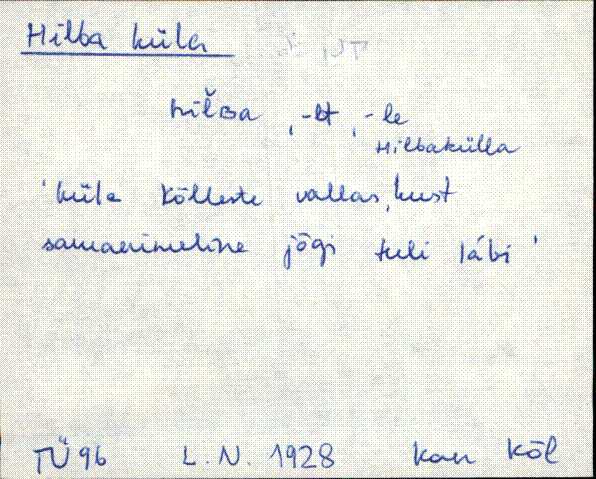 Hilba küla
hil̆ʙa , -lt , -le
Hilbakülla
'küla Kõlleste vallas, kust
samanimeline jõgi tuli läbi'
TÜ 96 L. N. 1928 Kan Kõl